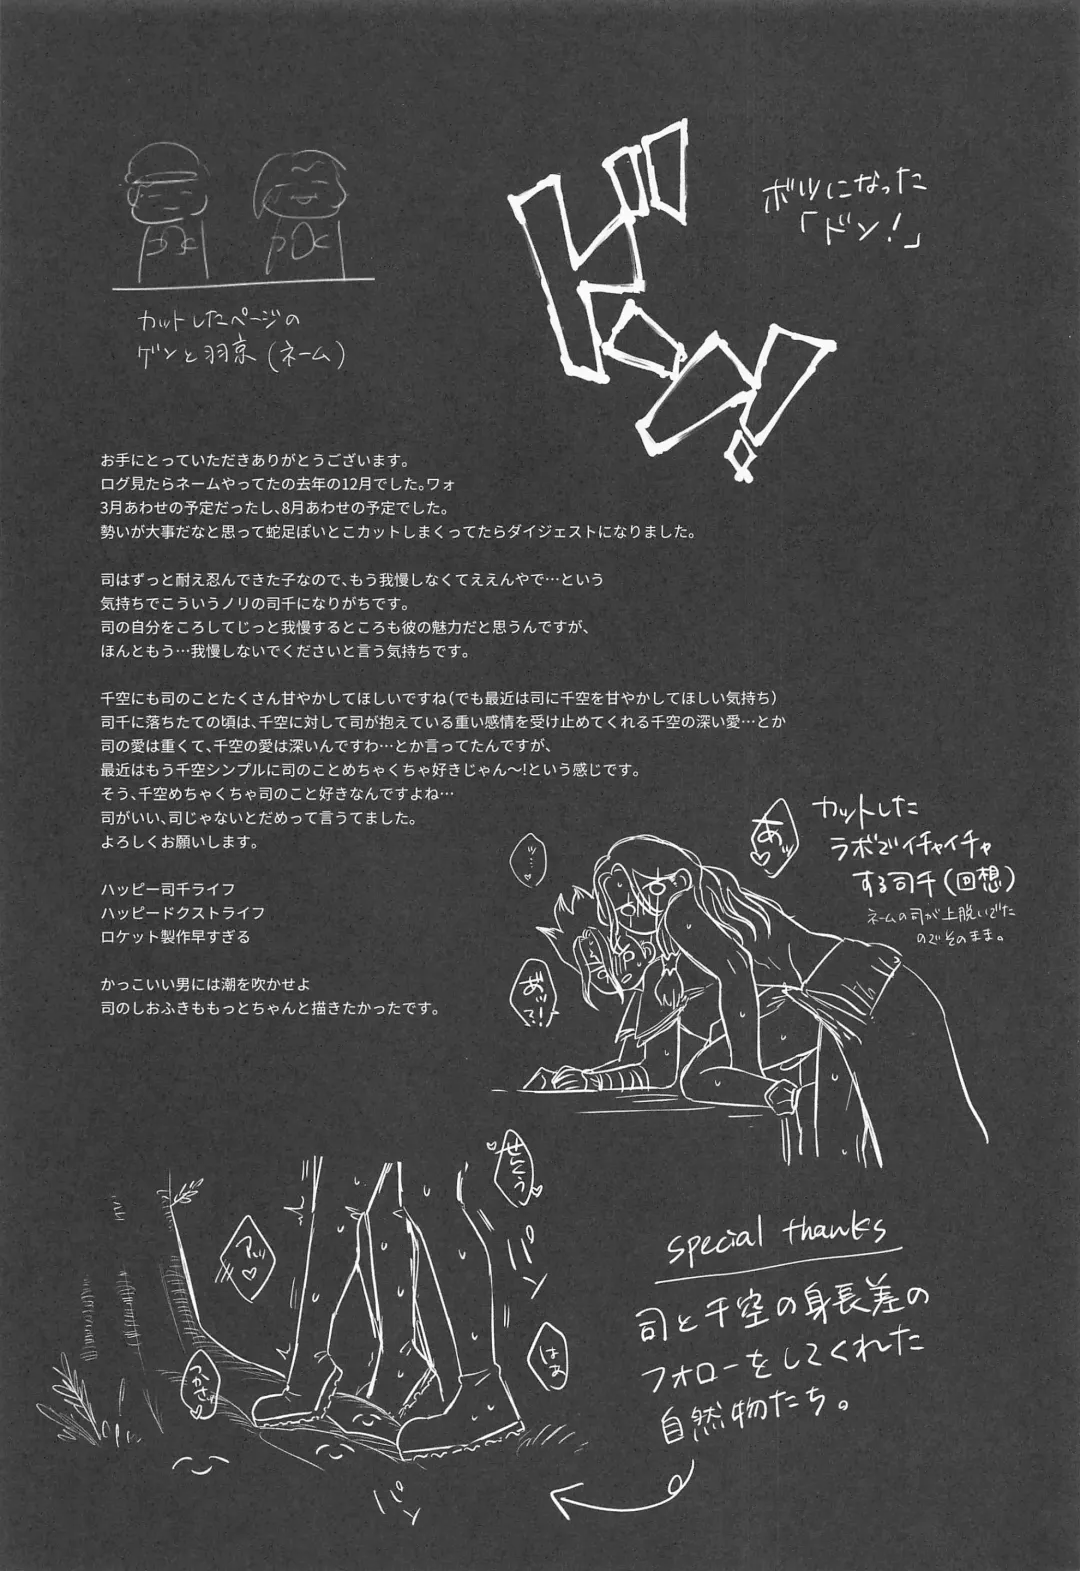 ボツになった
「ドン!」
ドン!
カットしたページの
ゲンと羽京(ネーム)
お手にとっていただきありがとうございます。
ログ見たらネームやってたの去年の12月でした。ワォ
3月あわせの予定だったし、8月あわせの予定でした。
勢いが大事だなと思って蛇足ぽいとこカットしまくってたらダイジェストになりました。
司はずっと耐え忍んできた子なので、もう我慢しなくてええんやで…という
気持ちでこういうノリの司千になりがちです。
司の自分をころしてじっと我慢するところも彼の魅力だと思うんですが、
ほんともう…我慢しないでくださいと言う気持ちです。
千空にも司のことたくさん甘やかしてほしいですね(でも最近は司に千空を甘やかしてほしい気持ち)
司千に落ちたての頃は、千空に対して司が抱えている重い感情を受け止めてくれる千空の深い愛…とか
司の愛は重くて、千空の愛は深いんですわ…とか言ってたんですが、
最近はもう千空シンプルに司のことめちゃくちゃ好きじゃん〜!という感じです。
そう、千空めちゃくちゃ司のこと好きなんですよね…
司がいい、司じゃないとだめって言うてました。
よろしくお願いします。
ハッピー司千ライフ
ハッピードクストライフ
ロケット製作早すぎる
かっこいい男には潮を吹かせよ
司のしおふきももっとちゃんと描きたかったです。
カットした
ラボでイチャイチャ
する司千(回想)
ネームの司が上脱いでた
のでそのまま。
あッ♡
ッ…♡
あ"ッ
せんくう
アッ♡
パン
はぁ
つかさ
パン
special thanks
司と千空の身長差の
フォローをしてくれた
自然物たち。